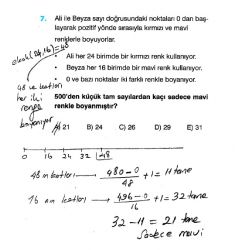 7. Ali ile Beyza sayı doğrusundaki noktaları 0 dan baş-
layarak pozitif yönde sırasıyla kırmızı ve mavi
renklerle boyuyorlar.
ekok(24,16)=48
• Ali her 24 birimde bir kırmızı renk kullanıyor.
• Beyza her 16 birimde bir mavi renk kullanıyor.
• 0 ve bazı noktalar iki farklı renkle boyanıyor.
48 ve katları
her iki
renge
boyanıyor
500'den küçük tam sayılardan kaçı sadece mavi
renkle boyanmıştır?
A) 21 B) 24 C) 26 D) 29 E) 31
0 16 24 32 48
48 in katları → 480-0 / 48 +1 = 11 tane
16 nın katları → 496-0 / 16 +1 = 32 tane
32 - 11 = 21 tane
Sadece mavi